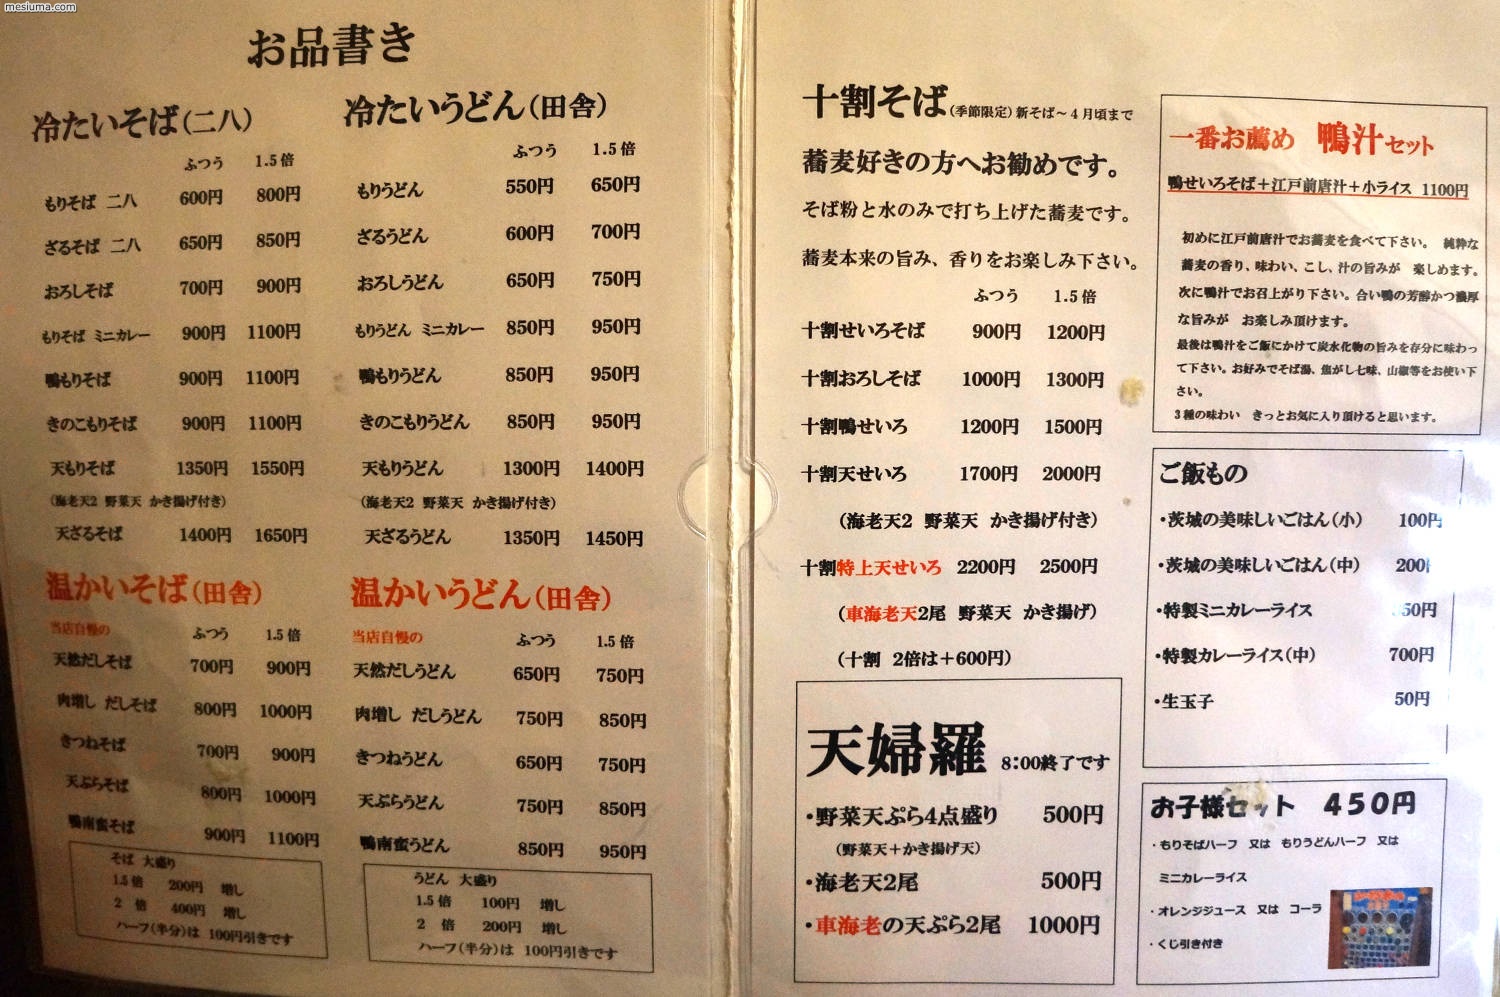 mesiuma.com
お品書き
冷たいそば(二八)
ふつう 1.5倍
もりそば 二八 600円 800円
ざるそば 二八 650円 850円
おろしそば 700円 900円
もりそば ミニカレー 900円 1100円
鴨もりそば 900円 1100円
きのこもりそば 900円 1100円
天もりそば 1350円 1550円
(海老天2 野菜天 かき揚げ付き)
天ざるそば 1400円 1650円
温かいそば(田舎)
当店自慢の ふつう 1.5倍
天然だしそば 700円 900円
肉増し だしそば 800円 1000円
きつねそば 700円 900円
天ぷらそば 800円 1000円
鴨南蛮そば 900円 1100円
そば 大盛り
1.5倍 200円 増し
2 倍 400円 増し
ハーフ(半分)は 100円引きです
冷たいうどん(田舎)
ふつう 1.5倍
もりうどん 550円 650円
ざるうどん 600円 700円
おろしうどん 650円 750円
もりうどん ミニカレー 850円 950円
鴨もりうどん 850円 950円
きのこもりうどん 850円 950円
天もりうどん 1300円 1400円
(海老天2 野菜天 かき揚げ付き)
天ざるうどん 1350円 1450円
温かいうどん(田舎)
当店自慢の ふつう 1.5倍
天然だしうどん 650円 750円
肉増し だしうどん 750円 850円
きつねうどん 650円 750円
天ぷらうどん 750円 850円
鴨南蛮うどん 850円 950円
うどん 大盛り
1.5倍 100円 増し
2 倍 200円 増し
ハーフ(半分)は 100円引きです
十割そば(季節限定)新そば～4月頃まで
蕎麦好きの方へお勧めです。
そば粉と水のみで打ち上げた蕎麦です。
蕎麦本来の旨み、香りをお楽しみ下さい。
ふつう 1.5倍
十割せいろそば 900円 1200円
十割おろしそば 1000円 1300円
十割鴨せいろ 1200円 1500円
十割天せいろ 1700円 2000円
(海老天2 野菜天 かき揚げ付き)
十割特上天せいろ 2200円 2500円
(車海老天2尾 野菜天 かき揚げ)
(十割 2倍は＋600円)
天婦羅 8:00終了です
・野菜天ぷら4点盛り 500円
(野菜天＋かき揚げ天)
・海老天2尾 500円
・車海老の天ぷら2尾 1000円
一番お薦め 鴨汁セット
鴨せいろそば＋江戸前唐汁＋小ライス 1100円
初めに江戸前唐汁でお蕎麦を食べて下さい。 純粋な
蕎麦の香り、味わい、こし、汁の旨みが 楽しめます。
次に鴨汁でお召上がり下さい。合い鴨の芳醇かつ濃厚
な旨みが お楽しみ頂けます。
最後は鴨汁をご飯にかけて炭水化物の旨みを存分に味わっ
て下さい。お好みでそば湯、焦がし七味、山椒等をお使い下
さい。
3種の味わい きっとお気に入り頂けると思います。
ご飯もの
・茨城の美味しいごはん(小) 100円
・茨城の美味しいごはん(中) 200
・特製ミニカレーライス 50円
・特製カレーライス(中) 700円
・生玉子 50円
お子様セット 450円
・もりそばハーフ 又は もりうどんハーフ 又は
ミニカレーライス
・オレンジジュース 又は コーラ
・くじ引き付き